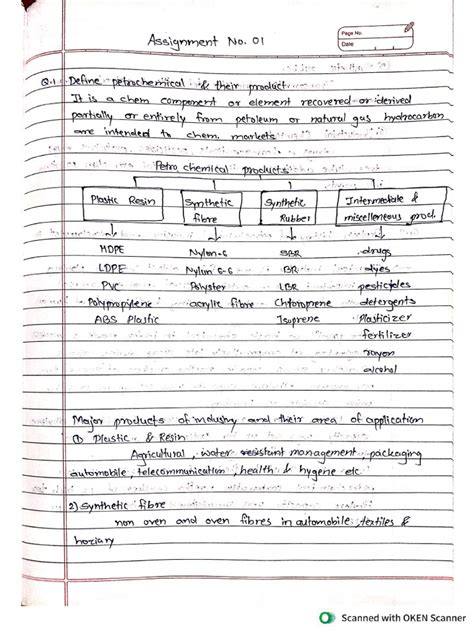 Assignment No. 01
Page No.
Date
Q.1 Define petrochemical & their product
It is a chem component or element recovered or derived
partially or entirely from petroleum or natural gas hydrocarbon
are intended to chem. markets
Petro chemical products
Plastic Resin Synthetic fibre Synthetic Rubber Intermediate & miscelleneous prod.
HDPE Nylon-6 SBR drugs
LDPE Nylon 6-6 BR dyes
PVC Polyster LBR pesticides
Polypropylene acrylic fibre Chloroprene detergents
ABS Plastic Isoprene Plasticizer
fertilizer
rayon
alcohol
Major products of industry and their area of application
1) Plastic & Resin
Agricultural, water resistant management packaging
automobile, telecommunication, health & hygene etc
2) Synthetic fibre
non oven and oven fibres in automobile, textiles &
hoziary
Scanned with OKEN Scanner